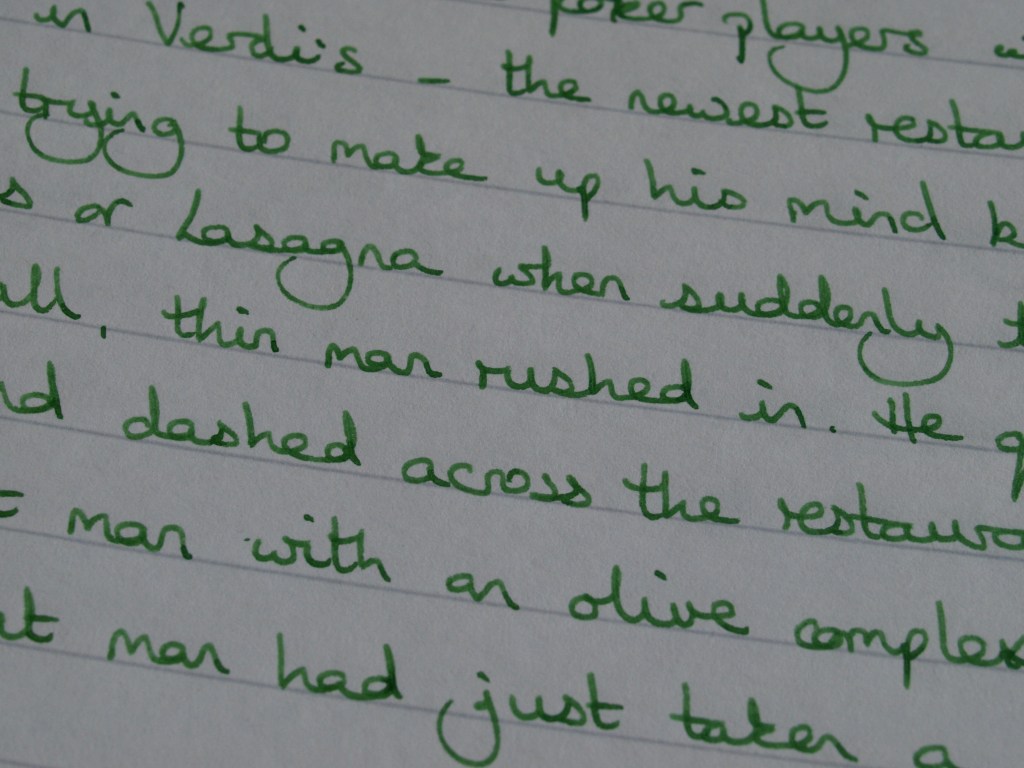 poker players
in Verdi's - the newest resta
trying to make up his mind b
s or Lasagna when suddenly t
all, thin man rushed in. He q
nd dashed across the restaura
t man with an olive complex
at man had just taken a